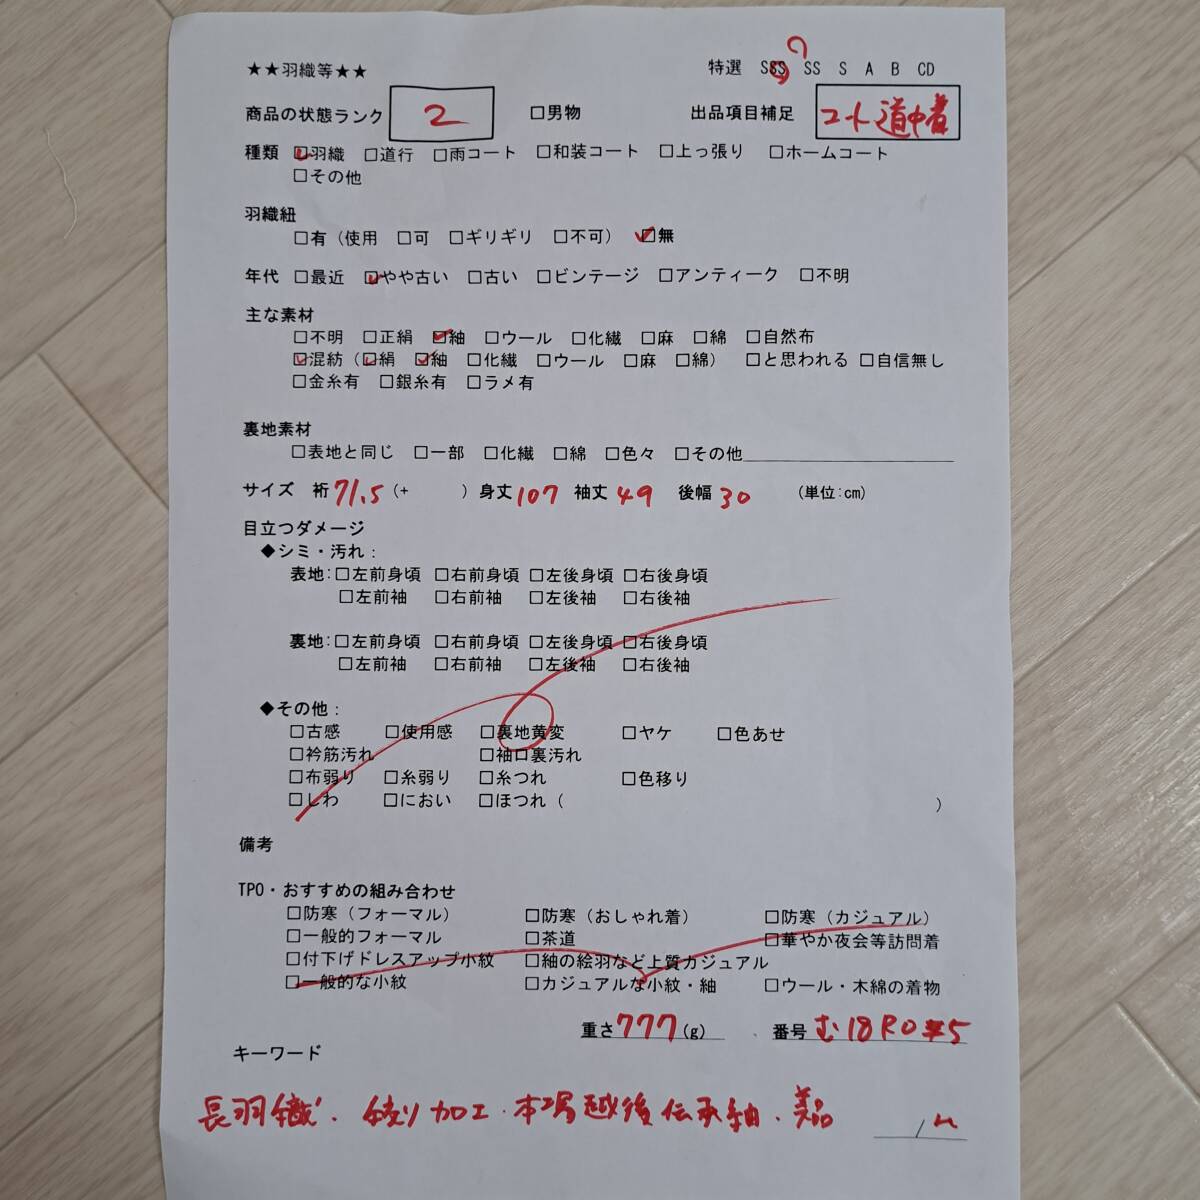 ★★羽織等★★ 特選 SSS SS S A B CD
商品の状態ランク 2 □男物 出品項目補足 コート 道中着
種類 ☑羽織 □道行 □雨コート □和装コート □上っ張り □ホームコート
□その他
羽織紐
□有(使用 □可 □ギリギリ □不可) ☑無
年代 □最近 ☑やや古い □古い □ビンテージ □アンティーク □不明
主な素材
□不明 □正絹 ☑紬 □ウール □化繊 □麻 □綿 □自然布
☑混紡(☑絹 ☑紬 □化繊 □ウール □麻 □綿) □と思われる □自信無し
□金糸有 □銀糸有 □ラメ有
裏地素材
□表地と同じ □一部 □化繊 □綿 □色々 □その他
サイズ 裄 71.5 (+ ) 身丈 107 袖丈 49 後幅 30 (単位:cm)
目立つダメージ
◆シミ・汚れ:
表地:□左前身頃 □右前身頃 □左後身頃 □右後身頃
□左前袖 □右前袖 □左後袖 □右後袖
裏地:□左前身頃 □右前身頃 □左後身頃 □右後身頃
□左前袖 □右前袖 □左後袖 □右後袖
◆その他:
□古感 □使用感 □裏地黄変 □ヤケ □色あせ
□衿筋汚れ □袖口裏汚れ
□布弱り □糸弱り □糸つれ □色移り
□しわ □におい □ほつれ( )
備考
TPO・おすすめの組み合わせ
□防寒(フォーマル) □防寒(おしゃれ着) □防寒(カジュアル)
□一般的フォーマル □茶道 □華やか夜会等訪問着
□付下げドレスアップ小紋 □紬の絵羽など上質カジュアル
□一般的な小紋 □カジュアルな小紋・紬 □ウール・木綿の着物
重さ 777 (g) 番号 む18R0
キーワード
長羽織・絞り加工・本場越後伝承紬・美品